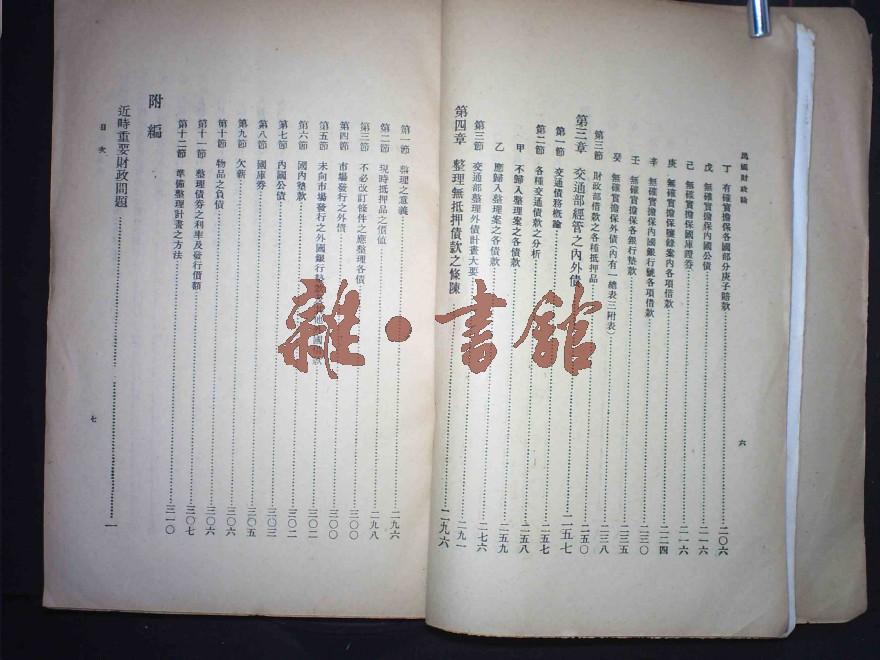 民國財政論
六
丁 有確實擔保各國部分庚子賠款……二〇六
戊 無確實擔保內國公債……二一六
己 無確實擔保國庫證券……二一六
庚 無確實擔保鹽餘案內各項借款……二二四
辛 無確實擔保內國銀行號各項借款……二三〇
壬 無確實擔保各銀行墊款……二三五
癸 無確實擔保外債(內有一總表三附表)……二三八
第三節 財政部借款之各種抵押品……二五〇
第三章 交通部經管之內外債……二五七
第一節 交通債務概論……二五七
第二節 各種交通債款之分析……二五七
甲 不歸入整理案之各債款……二五八
乙 應歸入整理案之各債款……二五九
第三節 交通部整理外債計畫大要……二七六
第四章 整理無抵押債款之條陳……二九六
第一節 整理之意義……二九六
第二節 現時抵押品之價值……二九八
第三節 不必改訂條件之應整理各債……三〇〇
第四節 市場發行之外債……三〇〇
第五節 未向市場發行之外國銀行墊款……三〇二
第六節 國內墊款……三〇二
第七節 內國公債……三〇三
第八節 國庫券……三〇三
第九節 欠薪……三〇五
第十節 物品之負債……三〇六
第十一節 整理債券之利率及發行債額……三〇七
第十二節 準備整理計畫之方法……三一〇
附編
近時重要財政問題……一
目次
七
雜·書館